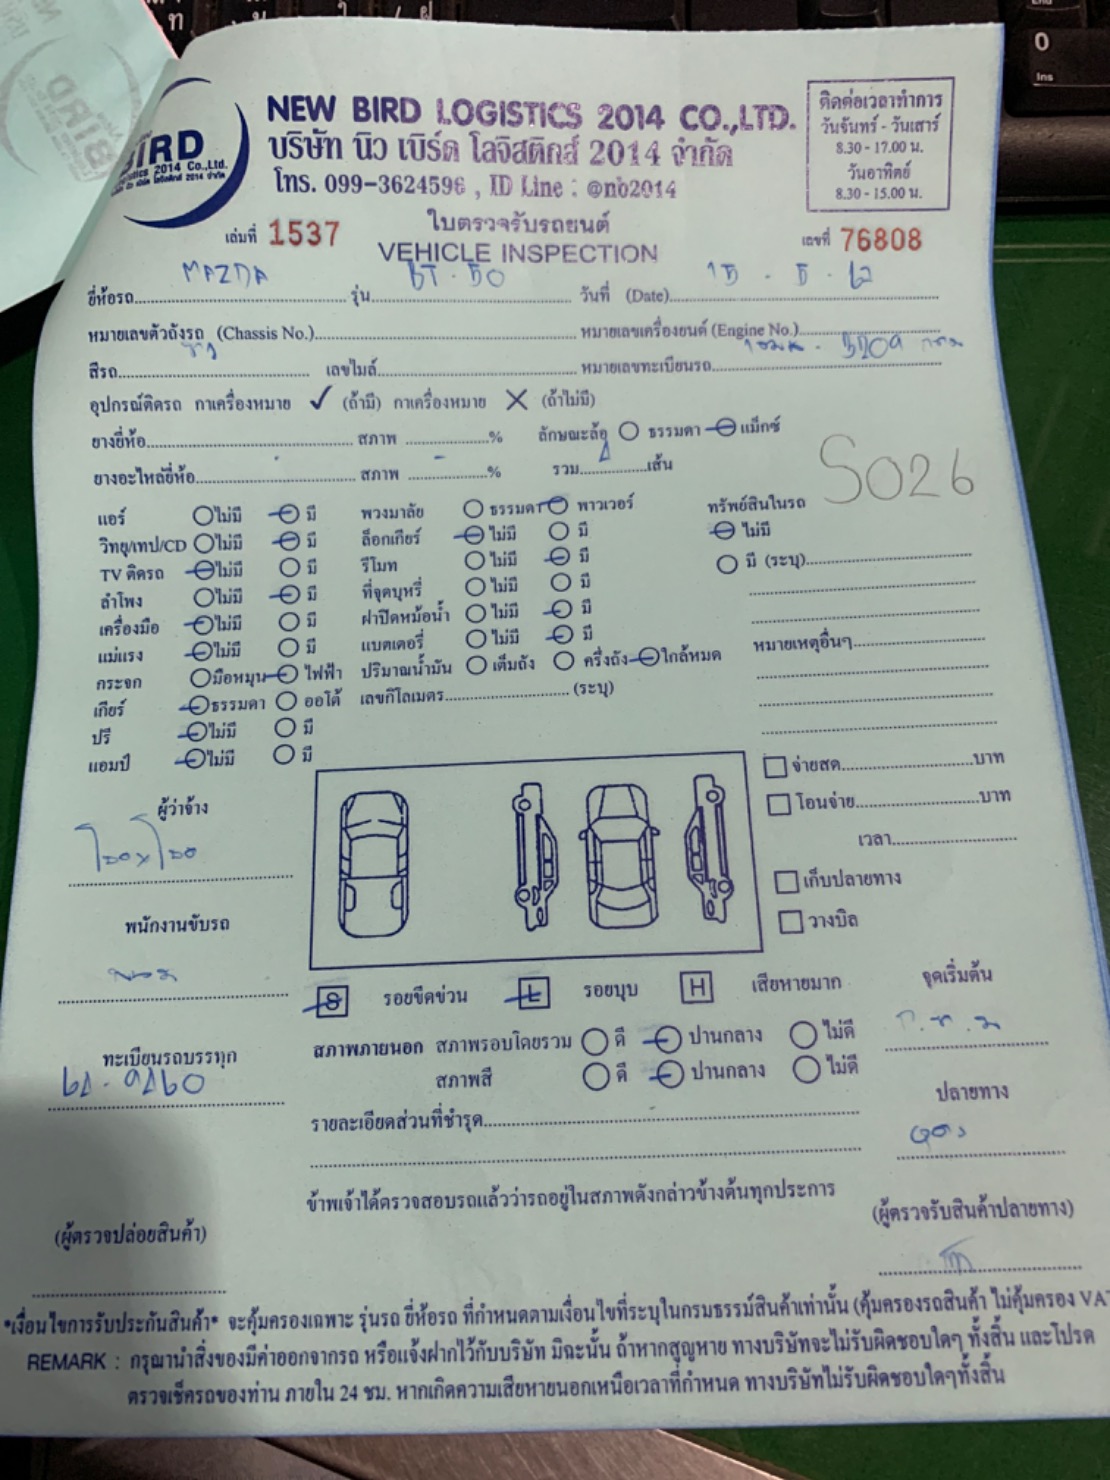 NEW BIRD LOGISTICS 2014 CO.,LTD.
บริษัท นิว เบิร์ด โลจิสติกส์ 2014 จำกัด
โทร. 099-3624596 , ID Line : @nb2014
ติดต่อเวลาทำการ
วันจันทร์ - วันเสาร์
8.30 - 17.00 น.
วันอาทิตย์
8.30 - 15.00 น.
BIRD
2014 Co.,Ltd.
ใบตรวจรับรถยนต์
เล่มที่ 1537 VEHICLE INSPECTION เลขที่ 76808
ยี่ห้อรถ MAZDA รุ่น BT-50 วันที่ (Date) 15-5-62
หมายเลขตัวถังรถ (Chassis No.) หมายเลขเครื่องยนต์ (Engine No.)
สีรถ เลขไมล์ หมายเลขทะเบียนรถ
อุปกรณ์ติดรถ กาเครื่องหมาย ✓ (ถ้ามี) กาเครื่องหมาย ✕ (ถ้าไม่มี)
ยางยี่ห้อ สภาพ % ลักษณะล้อ ธรรมดา แม็กซ์
ยางอะไหล่ยี่ห้อ สภาพ % รวม เส้น
S026
แอร์ ไม่มี มี พวงมาลัย ธรรมดา พาวเวอร์ ทรัพย์สินในรถ
วิทยุ/เทป/CD ไม่มี มี ล็อกเกียร์ ไม่มี มี ไม่มี
TV ติดรถ ไม่มี มี รีโมท ไม่มี มี มี (ระบุ)
ลำโพง ไม่มี มี ที่จุดบุหรี่ ไม่มี มี
เครื่องมือ ไม่มี มี ฝาปิดหม้อน้ำ ไม่มี มี
แม่แรง ไม่มี มี แบตเตอรี่ ไม่มี มี หมายเหตุอื่นๆ
กระจก มือหมุน ไฟฟ้า ปริมาณน้ำมัน เต็มถัง ครึ่งถัง ใกล้หมด
เกียร์ ธรรมดา ออโต้ เลขกิโลเมตร (ระบุ)
ปรี ไม่มี มี
แอมป์ ไม่มี มี
จ่ายสด บาท
โอนจ่าย บาท
เวลา
เก็บปลายทาง
วางบิล
ผู้ว่าจ้าง
พนักงานขับรถ
S รอยขีดข่วน L รอยบุบ H เสียหายมาก
จุดเริ่มต้น
ก.ท.ม
สภาพภายนอก สภาพรอบโดยรวม ดี ปานกลาง ไม่ดี
ทะเบียนรถบรรทุก
สภาพสี ดี ปานกลาง ไม่ดี
ปลายทาง
รายละเอียดส่วนที่ชำรุด
ข้าพเจ้าได้ตรวจสอบรถแล้วว่ารถอยู่ในสภาพดังกล่าวข้างต้นทุกประการ
(ผู้ตรวจปล่อยสินค้า) (ผู้ตรวจรับสินค้าปลายทาง)
*เงื่อนไขการรับประกันสินค้า* จะคุ้มครองเฉพาะ รุ่นรถ ยี่ห้อรถ ที่กำหนดตามเงื่อนไขที่ระบุในกรมธรรม์สินค้าเท่านั้น (คุ้มครองรถสินค้า ไม่คุ้มครอง VAT
REMARK : กรุณานำสิ่งของมีค่าออกจากรถ หรือแจ้งฝากไว้กับบริษัท มิฉะนั้น ถ้าหากสูญหาย ทางบริษัทจะไม่รับผิดชอบใดๆ ทั้งสิ้น และโปรด
ตรวจเช็ครถของท่าน ภายใน 24 ชม. หากเกิดความเสียหายนอกเหนือเวลาที่กำหนด ทางบริษัทไม่รับผิดชอบใดๆทั้งสิ้น